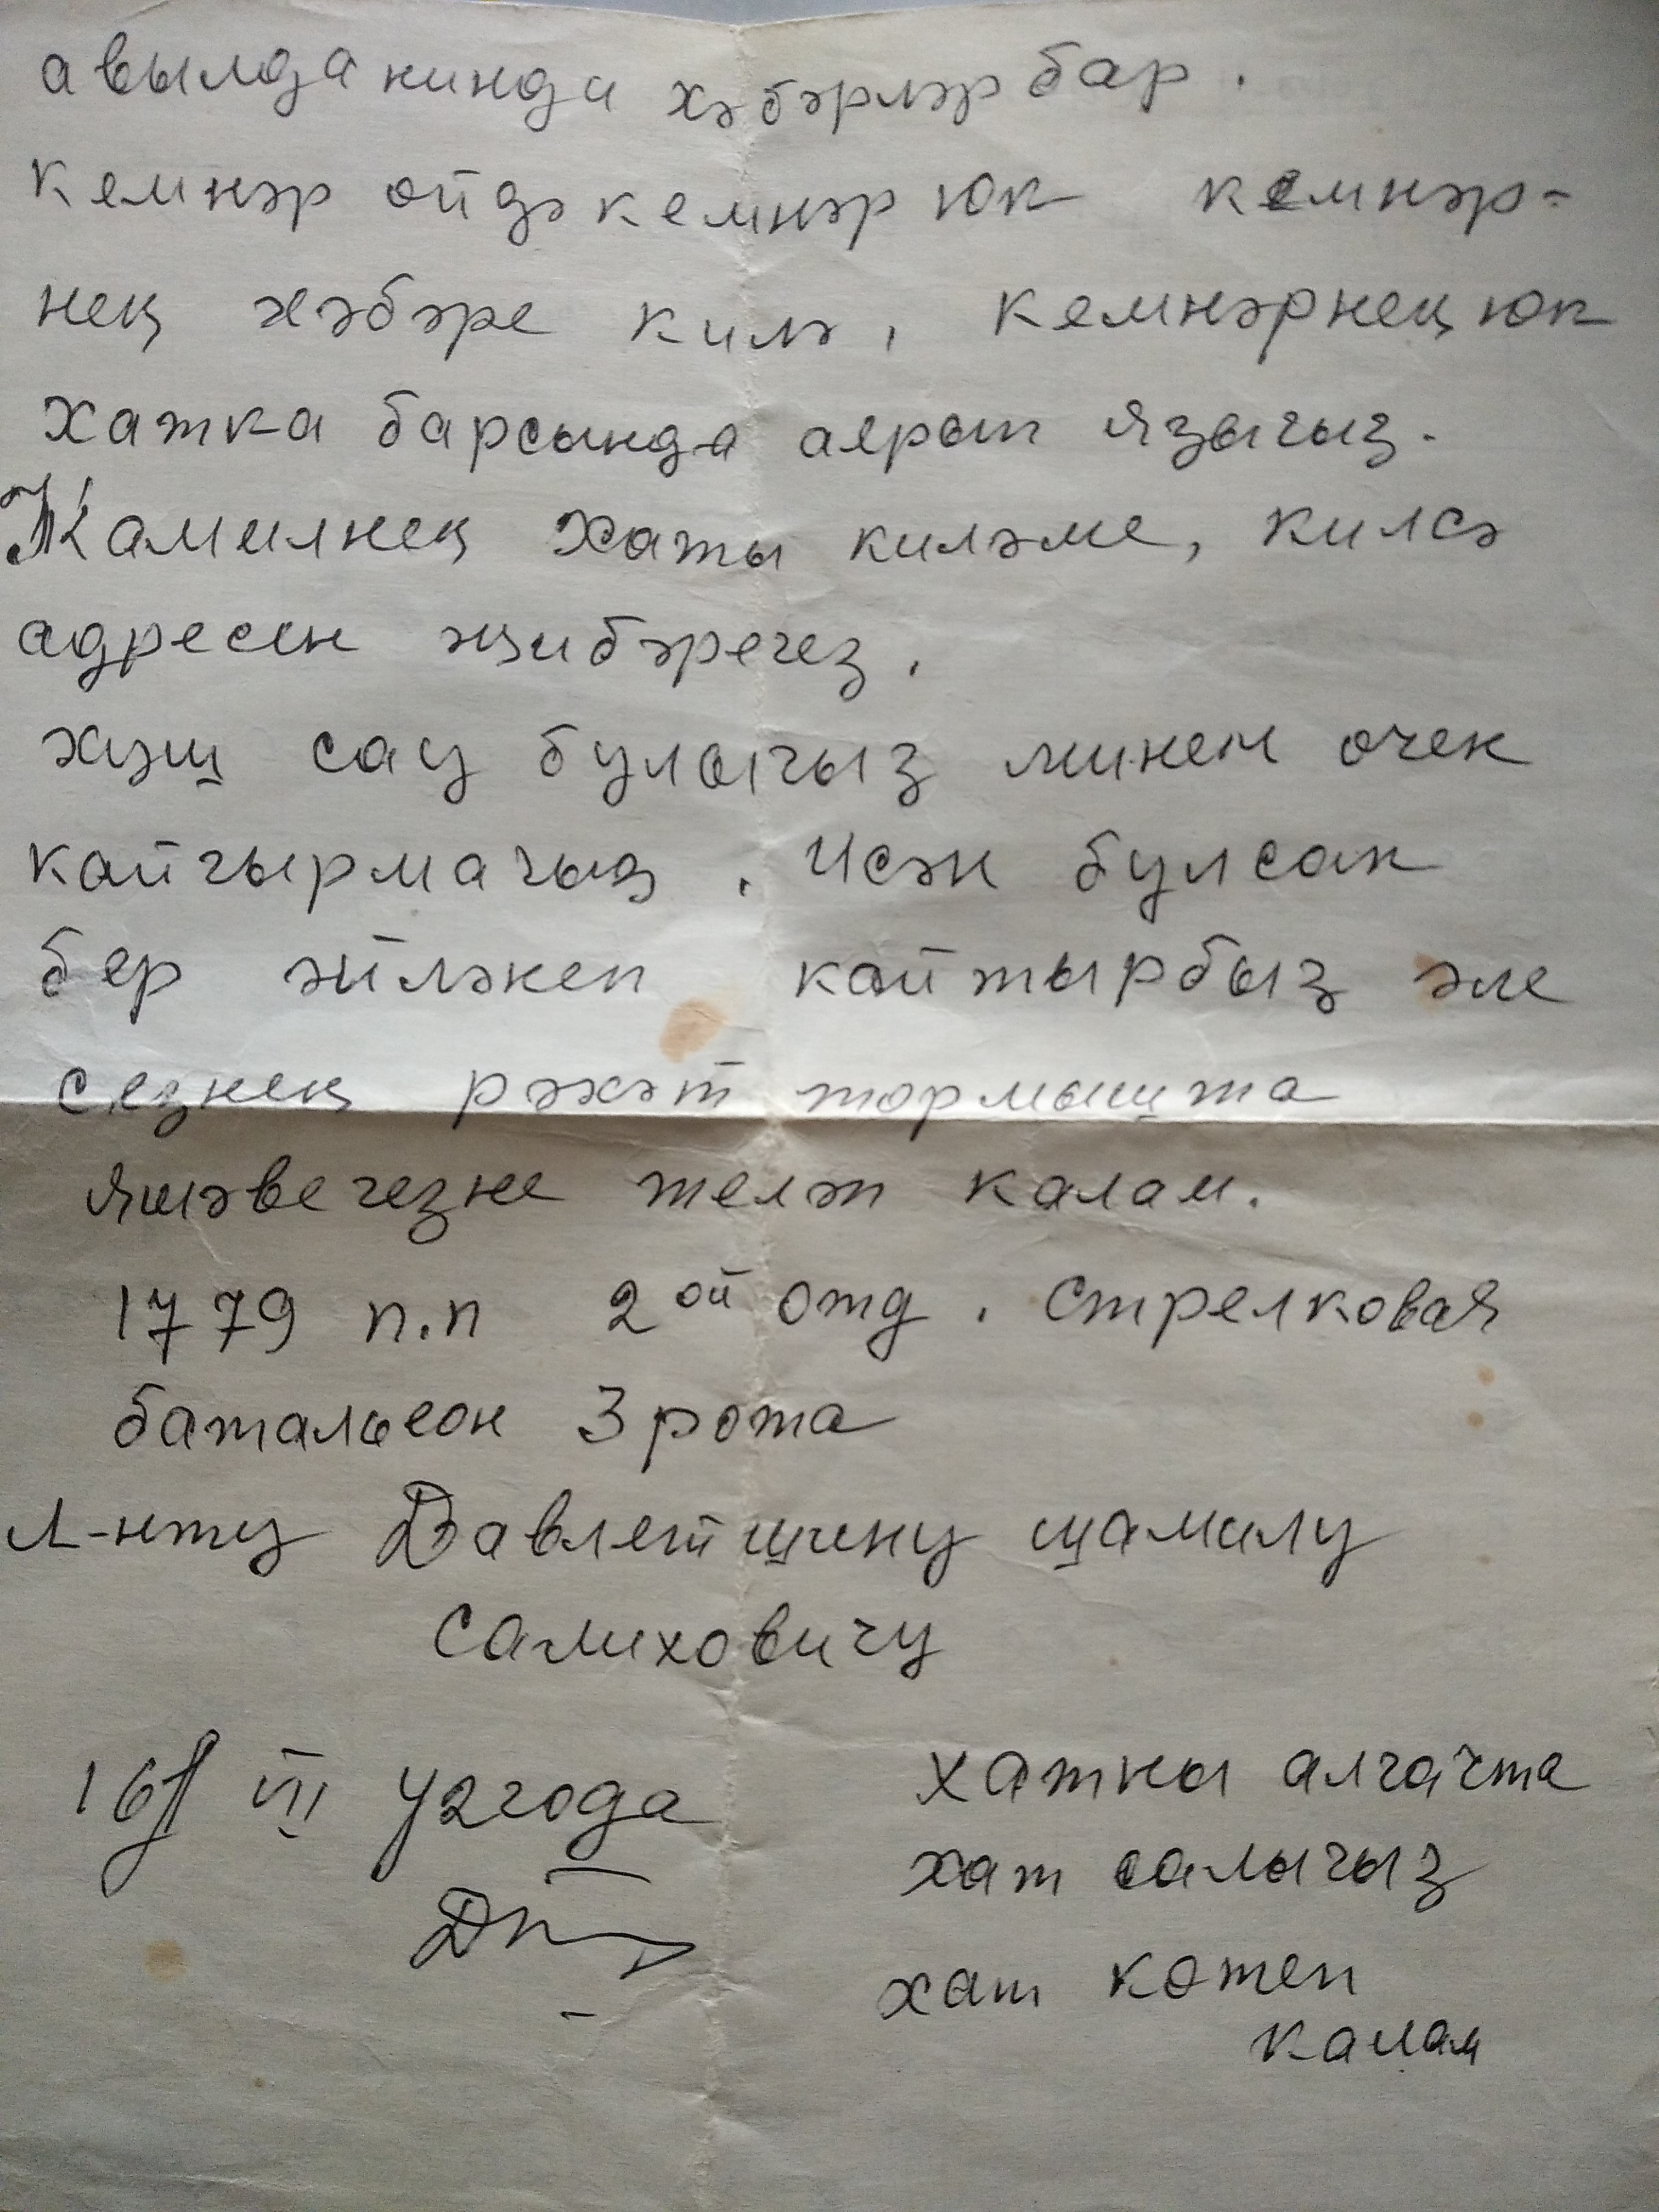 авылда нинди хәбәрләр бар.
Кемнәр ойдә кемнәр юк кемнәр-
нең хәбәре килә, кемнәрнең юк
хатка барсында аерып языгыз.
Камилнең хаты киләме, килсә
адресен җибәрегез.
хуш сау булыгыз минем очен
кайгырмагыз. Исән булсак
бер әйләнеп кайтырбыз әле
сезнең рәхәт тормышта
яшәвегезне теләп калам.
1779 п.п 2ой отд. стрелковая
батальеон 3 рота
Л-нту Давлетшину шамилу
Салиховичу
16/ VII 42 года
хатны алгачта
хат салыгыз
хат көтеп
калам